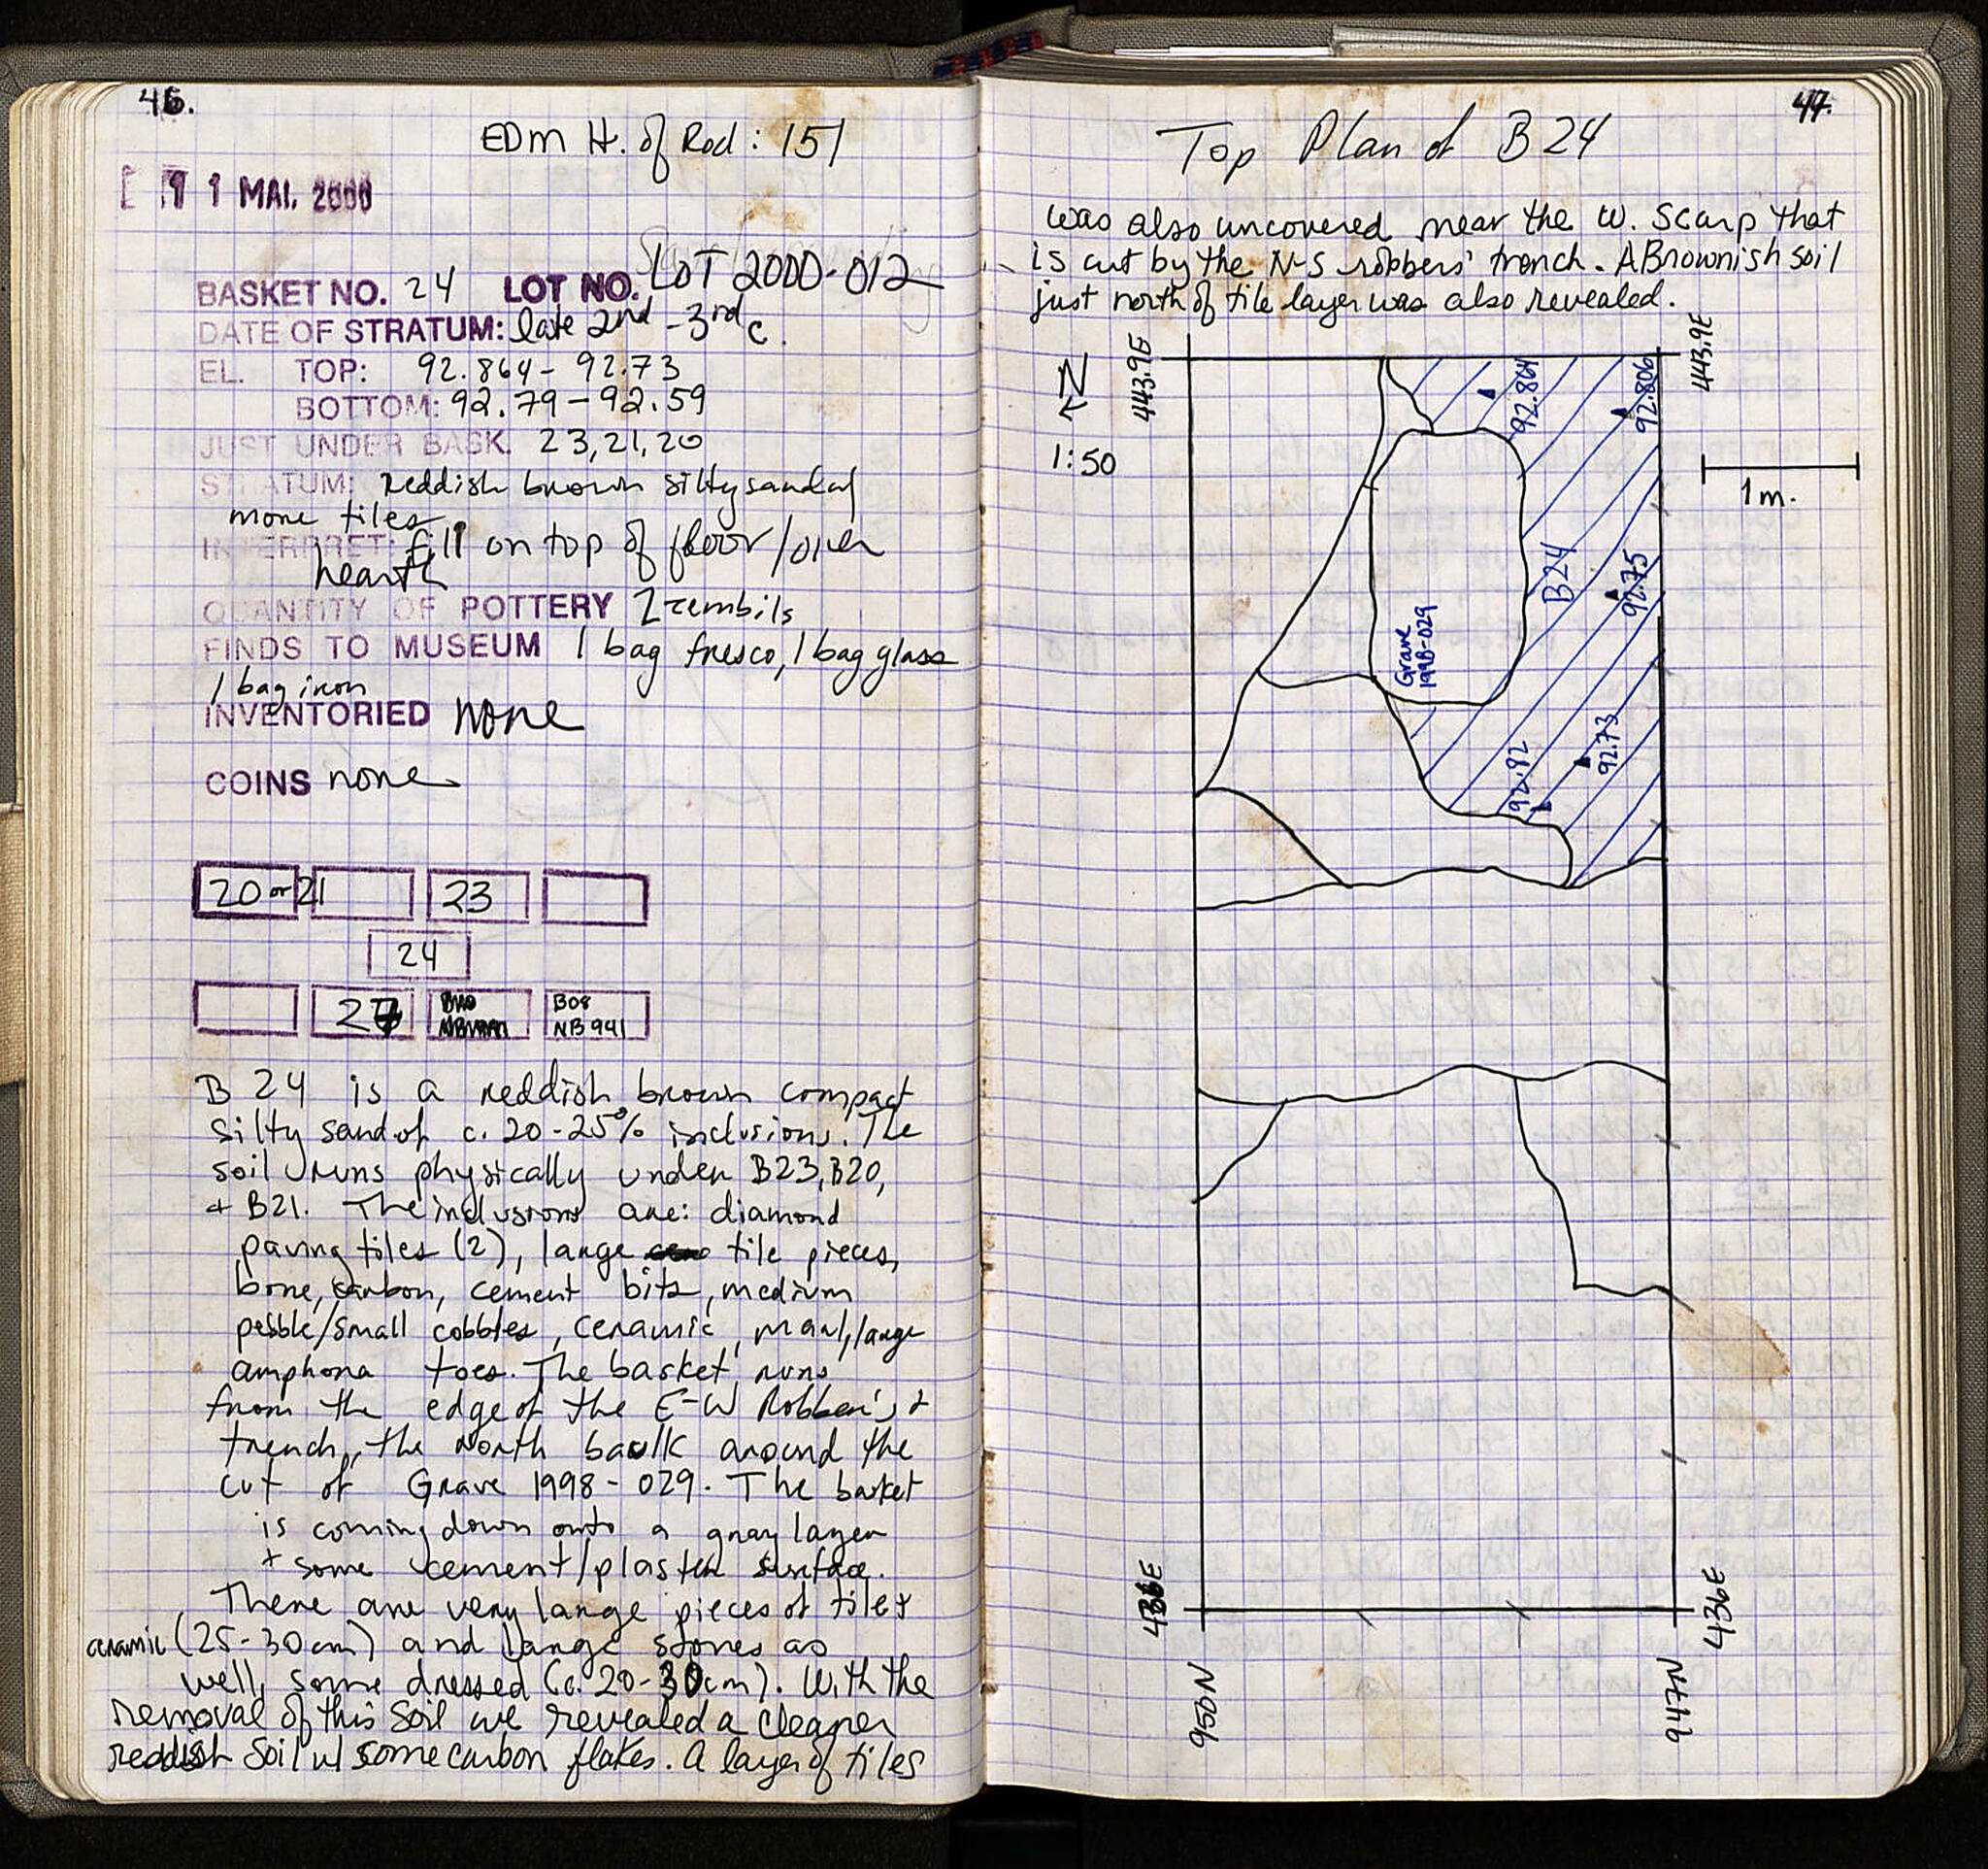 46.
EDM H. of Rod: 151
11 MAI. 2000
BASKET NO. 24 LOT NO. LOT 2000-012
DATE OF STRATUM: late 2nd - 3rd c.
EL. TOP: 92.864 - 92.73
BOTTOM: 92.79 - 92.59
JUST UNDER BASK. 23, 21, 20
STRATUM: reddish brown silty sand w/
more tiles
INTERPRET: fill on top of floor/over
hearth
QUANTITY OF POTTERY 2 zembils
FINDS TO MUSEUM 1 bag fresco, 1 bag glass
1 bag iron
INVENTORIED none
COINS none
20 or 21 23
24
27 B08
NB 941
B 24 is a reddish brown compact
silty sand of c. 20-25% inclusions. The
soil runs physically under B23, B20,
+ B21. The inclusions are: diamond
paving tiles (2), large tile pieces,
bone, carbon, cement bits, medium
pebble/small cobbles, ceramic, marl, large
amphora toes. The basket runs
from the edge of the E-W Robber's
trench, the north baulk around the
cut of Grave 1998-029. The basket
is coming down onto a gray layer
+ some cement/plaster surface.
There are very large pieces of tile +
ceramic (25-30cm) and large stones as
well, some dressed (c. 20-30cm). With the
removal of this soil we revealed a cleaner
reddish soil w/ some carbon flakes. A layer of tiles
47.
Top Plan of B24
was also uncovered near the W. Scarp that
is cut by the N-S robbers' trench. A Brownish soil
just north of tile layer was also revealed.
N
1:50
443.9E
443.9E
92.864
92.806
1m.
B24
92.75
Grave
1998-029
92.82
92.73
436E
436E
950N
947N